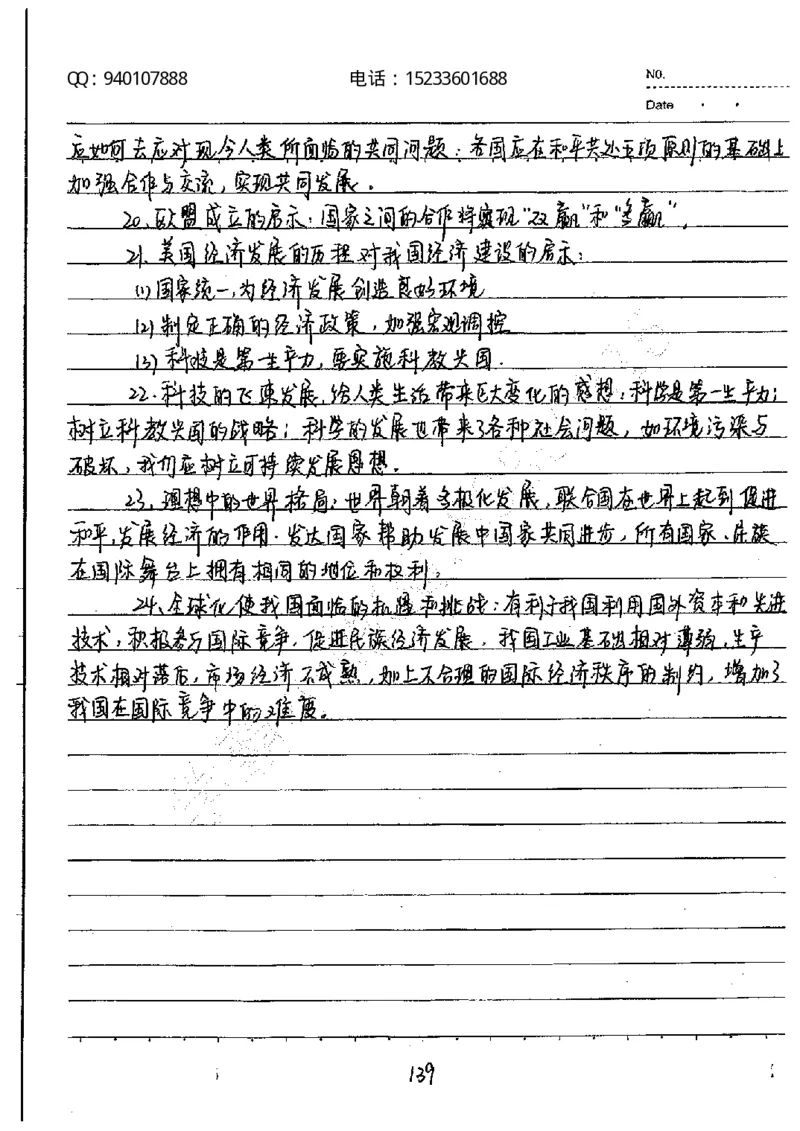 QQ：940107888 电话：15233601688 No.
Date
应如何去应对现今人类所面临的共同问题：各国应在和平共处五项原则的基础上
加强合作与交流，实现共同发展。
20、欧盟成立的启示：国家之间的合作将实现“双赢”和“多赢”。
21、美国经济发展的历程对我国经济建设的启示：
(1)国家统一，为经济发展创造良好环境
(2)制定正确的经济政策，加强宏观调控
(3)科技是第一生产力，要实施科教兴国.
22.科技的飞速发展，给人类生活带来巨大变化的感想：科学是第一生产力；
树立科教兴国的战略；科学的发展也带来了各种社会问题，如环境污染与
破坏，我们应树立可持续发展思想。
23、理想中的世界格局：世界朝着多极化发展，联合国在世界上起到促进
和平，发展经济的作用.发达国家帮助发展中国家共同进步，所有国家、民族
在国际舞台上拥有相同的地位和权利。
24、全球化使我国面临的机遇和挑战：有利于我国利用国外资本和先进
技术，积极参与国际竞争，促进民族经济发展.我国工业基础相对薄弱，生产
技术相对落后，市场经济不成熟，加上不合理的国际经济秩序的制约，增加了
我国在国际竞争中的难度。
139